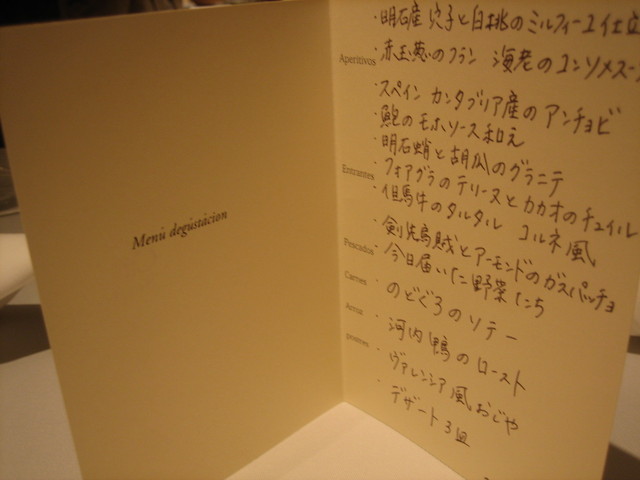 Menù degústácion
・明石産 穴子と白桃のミルフィーユ仕立
Aperitivos
・赤玉葱のフラン 海老のコンソメスー
・スペイン カンタブリア産のアンチョビ
・鮑のモホソース和え
・明石蛸と胡瓜のグラニテ
Entrantes
・フォアグラのテリーヌとカカオのチュイル
・但馬牛のタルタル コルネ風
・剣先烏賊とアーモンドのガスパッチョ
Pescados
・今日届いた野菜たち
Carnes
・のどぐろのソテー
Arroz
・河内鴨のロースト
postres
・ヴァレンシア風おじや
・デザート3皿